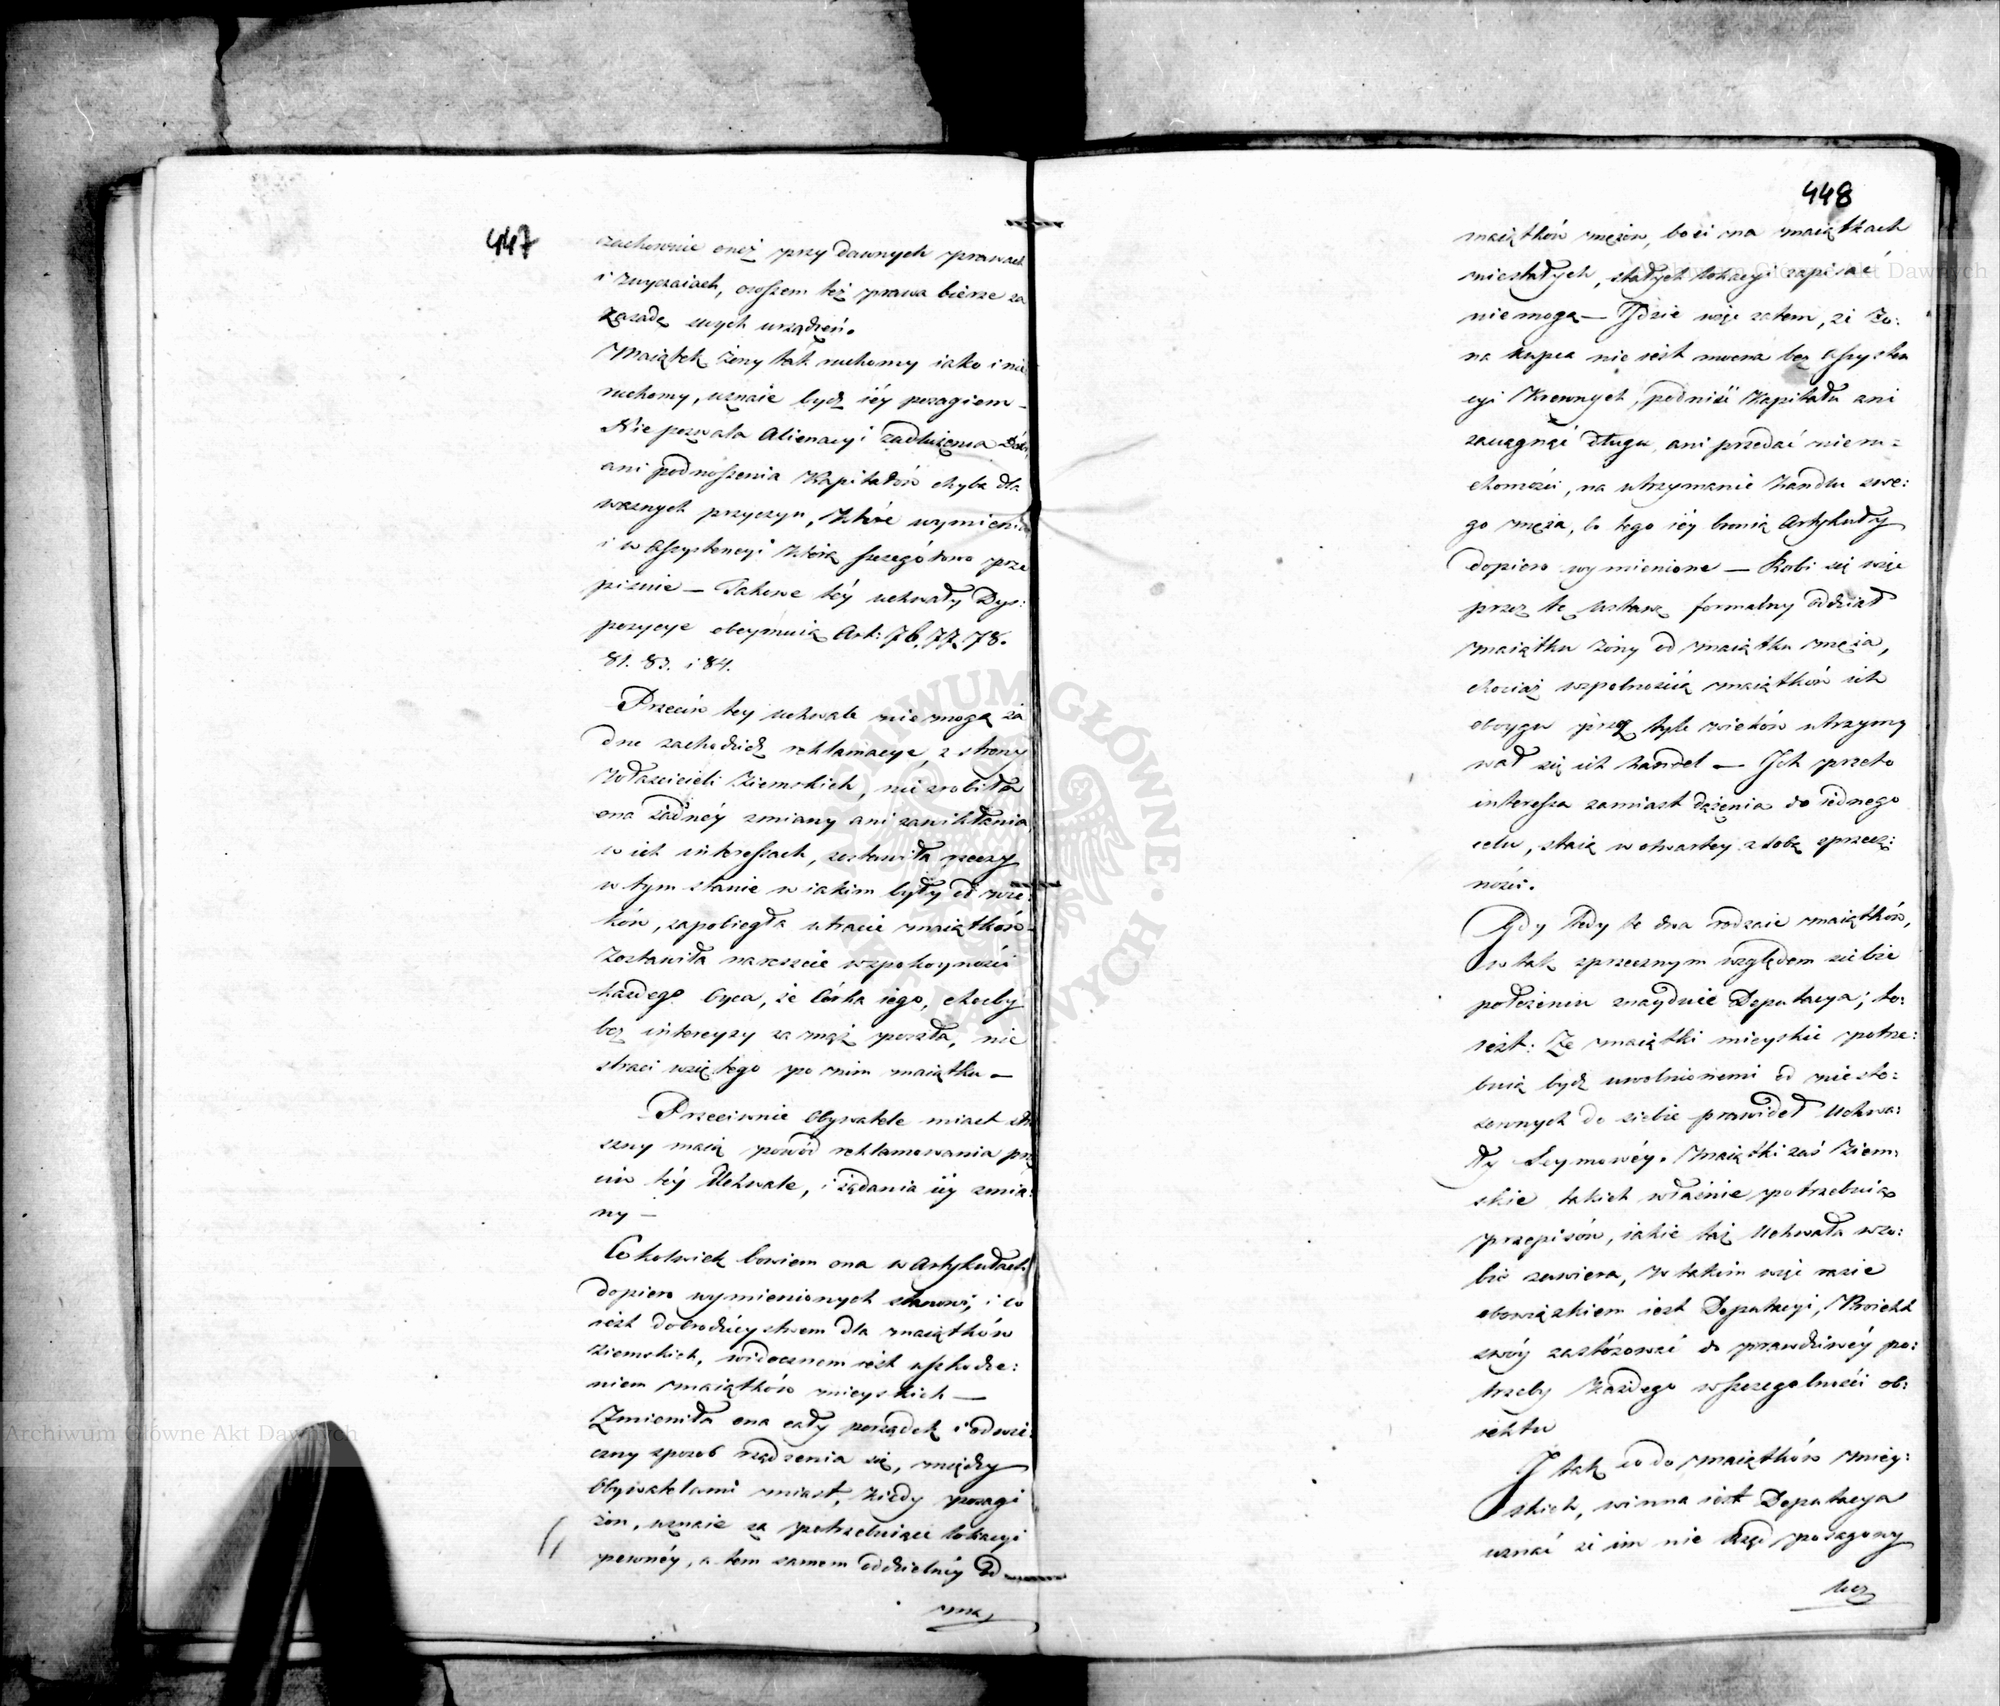 447
zachowuie oneż przy dawnych prawach
i zwyczaiach, owszem też prawa bierze za
zasadę swych urządzeń.
Maiątek żony tak ruchomy iako i nie
ruchomy, uznaie bydź iéy posagiem –
Nie pozwala Alienacyi zadłużenia Dóbr
ani podnoszenia Kapitałów chyba dla
ważnych przyczyn, które wymienia
i w Assystencyi którą szczegółowo prze
pisuie – Takowe téy uchwały Dys:
pozycye obeymuią Art: 76, 77, 78.
81. 83. i 84.
Przeciw tey uchwale nie mogą ża
dne zachodzić reklamacye, z strony
Właścicieli Ziemskich, nie zrobiła
ona żadnéy zmiany ani zawikłania
w ich interessach, zostawiła rzeczy
w tym stanie w iakim były od wie:
ków, zapobiegła utracie maiątków
Zostawiła nareszcie w spokoyności
każdego Oyca, że Córka iego, choćby
bez intercyzy za mąż poszła, nie
straci wziętego po nim maiątku –
Przeciwnie Obywatele miast słu
szny maią powód reklamowania prze
ciw téy Uchwale, i żądania iéy zmia:
ny –
Cokolwiek bowiem ona w Artykułach
dopiero wymienionych stanowi, i co
iest dobrodzieystwem dla maiątków
ziemskich, widocznem iest uszkodze:
niem maiątków mieyskich –
Zmieniła ona cały porządek i odwie:
czny sposób rządzenia się, między
Obywatelami miast, kiedy posagi
żon, uznaie za potrzebuiące lokacyi
pewnéy, a tem samem oddzielnéy od
ma
448
maiątków mężów, bo i na maiątkach
niestałych, stałych lokacyi zapisać
nie mogą – Idzie więc zatem, że Żo:
na kupca nie iest mocna bez Assysten
cyi Krewnych, podnieść Kapitału ani
zaciągnąć długu, ani przedać nieru=
chomości, na utrzymanie handlu swe:
go męża, bo tego iéy bronią Artykuły
dopiero wymienione – Robi się więc
przez tę ustawę formalny oddział
maiątku żony od maiątku męża,
chociaż wspólnością maiątków ich
oboyga przez tyle wieków utrzymy
wał się ich handel – Ich przeto
interessa zamiast dążenia do iednego
celu, staią w otwartey z sobą sprzecz:
ności.
Gdy tedy te dwa rodzaie maiątków,
w tak sprzecznym względem siebie
położeniu znayduie Deputacya; to:
iest: Że maiątki mieyskie potrze:
buią bydź uwolnionemi od niesto:
sownych do siebie prawideł Uchwa:
ły Seymowéy. Maiątki zaś Ziem:
skie takich właśnie potrzebuią
przepisów, iakie taż Uchwała w so:
bie zawiera, W takim więc razie
obowiązkiem iest Deputacyi, Proiekt
swóy zastósować do prawdziwéy po:
trzeby każdego w szczególności ob:
iektu
I tak co do maiątków miey:
skich, winna iest Deputacya
uznać że im nie Rząd posagowy
lecz